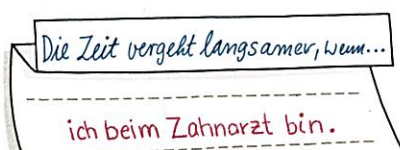 Die Zeit vergeht langsamer, wenn...
ich beim Zahnarzt bin.